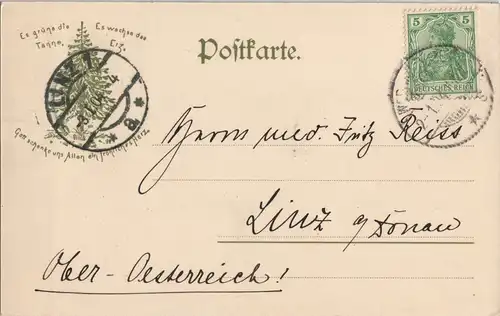 Es grüne die Es wachse das
Tanne, Erz,
Gott schenke uns Allen ein fröhliches Herz
Postkarte.
5 5
DEUTSCHES REICH
LINZ 1
a
Herrn med. Fritz Reiss
Linz a/Donau
Ober-Oesterreich!